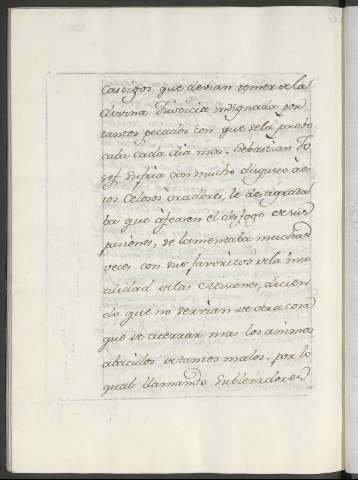 castigos que devian temer de la
divina Justicia indignada por
tantos pecados con que se la provo
caba cada dia mas. Sebastian Jo
sef sufria con mucho disgusto à es
tos celosos oradores, le desagrada
ba que afeasen el desfogo de sus
pasiones, se lamentaba muchas
veces con sus favoritos de la inu
tilidad de las Misiones, dicien
do que no servian de otra cosa
que de aterrar mas los animos
abatidos de tantos males, por lo
qual llamando Sublevadores